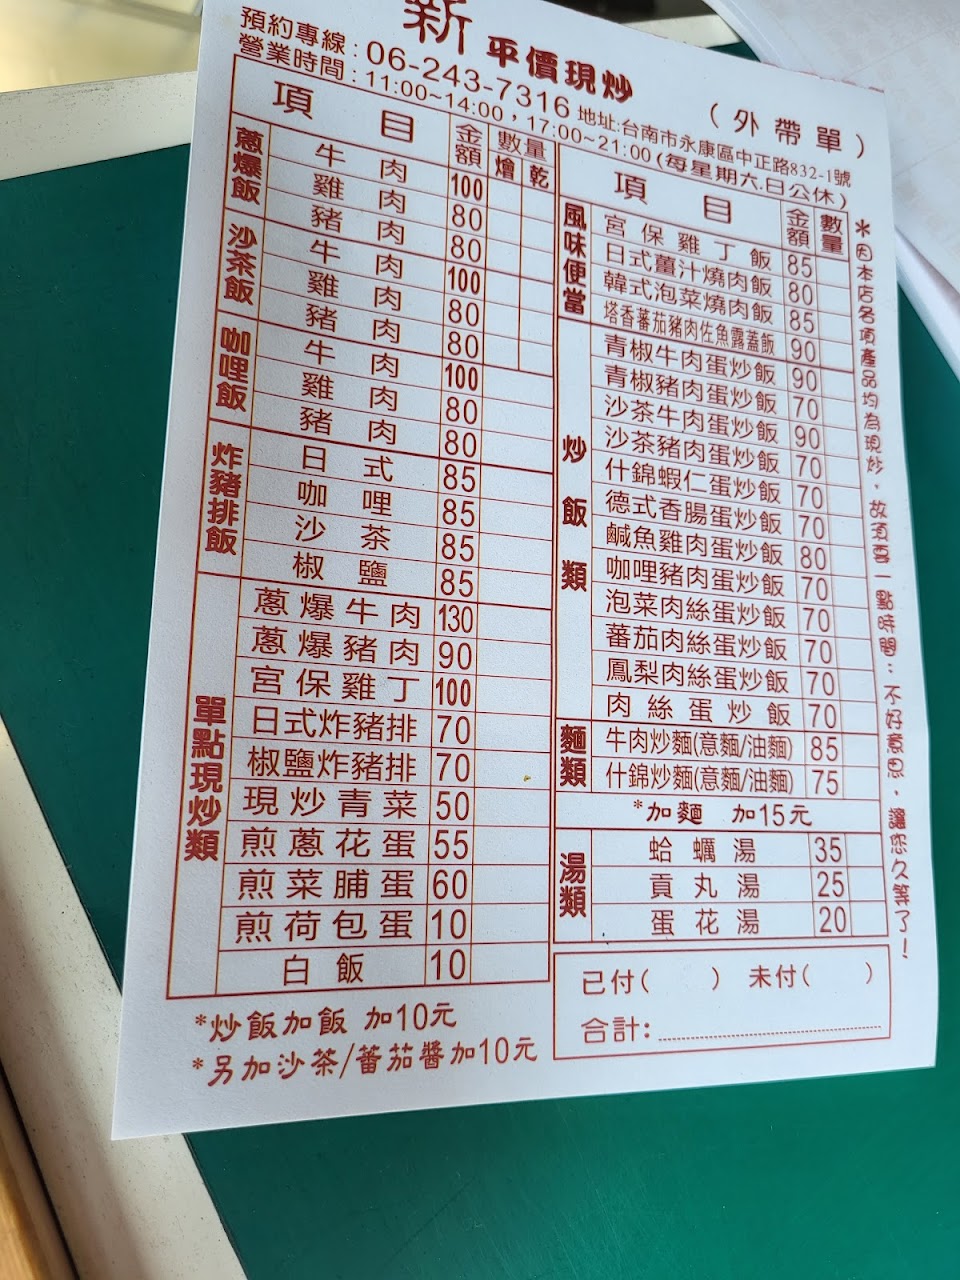 新 平價現炒 (外帶單)
預約專線:06-243-7316 地址:台南市永康區中正路832-1號
營業時間:11:00~14:00,17:00~21:00(每星期六.日公休)
項目 金額 數量 燴 乾
蔥爆飯
牛肉 100
雞肉 80
豬肉 80
沙茶飯
牛肉 100
雞肉 80
豬肉 80
咖哩飯
牛肉 100
雞肉 80
豬肉 80
炸豬排飯
日式 85
咖哩 85
沙茶 85
椒鹽 85
單點現炒類
蔥爆牛肉 130
蔥爆豬肉 90
宮保雞丁 100
日式炸豬排 70
椒鹽炸豬排 70
現炒青菜 50
煎蔥花蛋 55
煎菜脯蛋 60
煎荷包蛋 10
白飯 10
*炒飯加飯 加10元
*另加沙茶/蕃茄醬加10元
項目 金額 數量
風味便當
宮保雞丁飯 85
日式薑汁燒肉飯 80
韓式泡菜燒肉飯 85
塔香蕃茄豬肉佐魚露蓋飯 90
炒飯類
青椒牛肉蛋炒飯 90
青椒豬肉蛋炒飯 70
沙茶牛肉蛋炒飯 90
沙茶豬肉蛋炒飯 70
什錦蝦仁蛋炒飯 70
德式香腸蛋炒飯 70
鹹魚雞肉蛋炒飯 80
咖哩豬肉蛋炒飯 70
泡菜肉絲蛋炒飯 70
蕃茄肉絲蛋炒飯 70
鳳梨肉絲蛋炒飯 70
肉絲蛋炒飯 70
麵類
牛肉炒麵(意麵/油麵) 85
什錦炒麵(意麵/油麵) 75
*加麵 加15元
湯類
蛤蠣湯 35
貢丸湯 25
蛋花湯 20
已付( ) 未付( )
合計:
*因本店各項產品均為現炒,故須要一點時間;不好意思,讓您久等了!